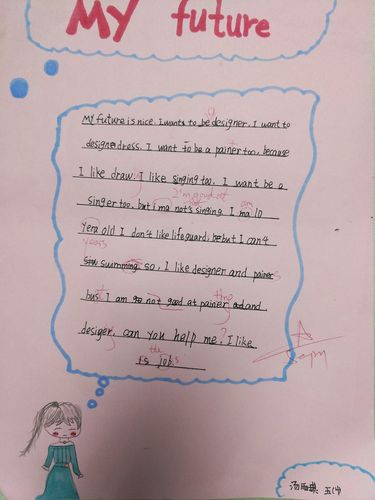 My future
My future is nice. I wants to be designer. I want to
designe dress. I want to be a painer too, because
I like draw. I like singing too. I want be a
I'm good at
singer too. but i ma not's singing. I ma 10
am
yera old I don't like lifeguard, but I can't
years
swimming so, I like designer and painer
but I am so not good at painer and
ting
desiger, can you help me? I like
the
is job.
五(4)